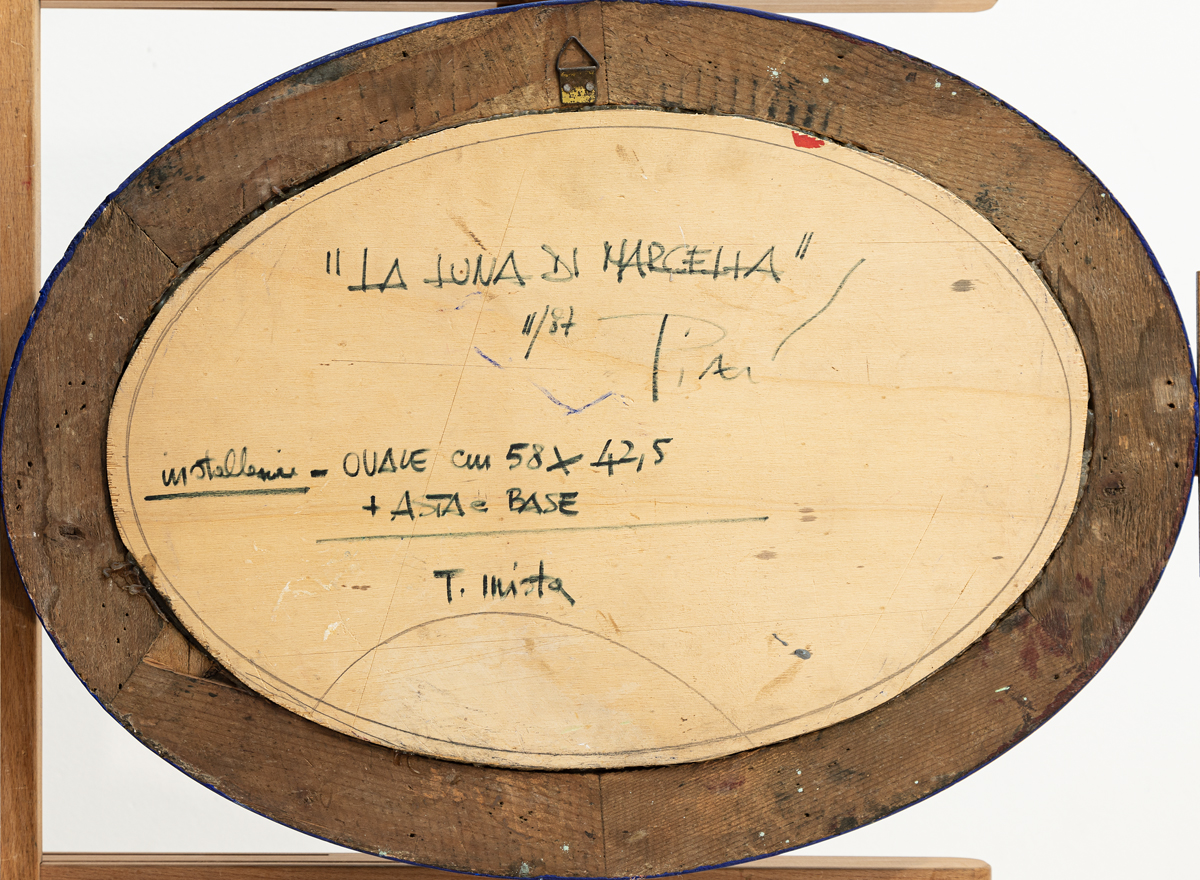 "LA LUNA DI MARCELLA"
11/87
installazione - OVALE cm 58 X 42,5
+ ASTA e BASE
T. Mista